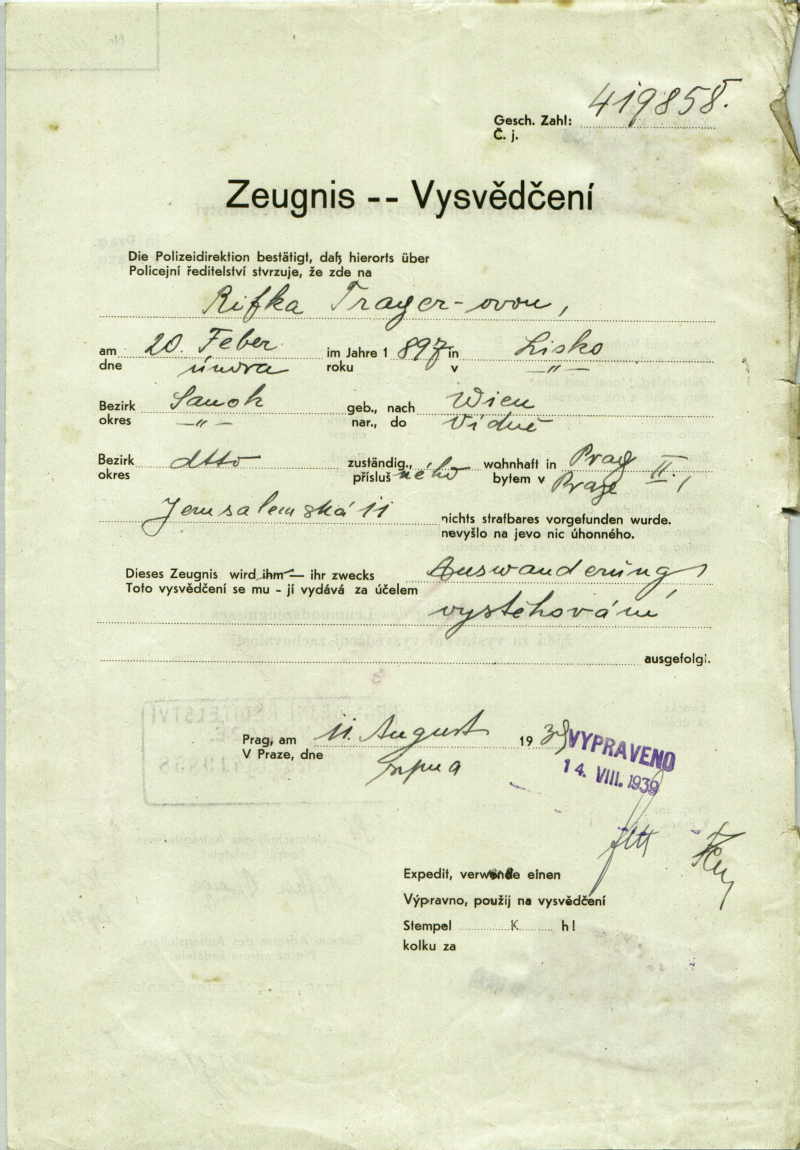 Gesch. Zahl: 419858.
Č. j.
Zeugnis -- Vysvědčení
Die Polizeidirektion bestätigt, daß hierorts über
Policejní ředitelství stvrzuje, že zde na
Rifka Trager-ovou,
am 20. Feber im Jahre 1897 in Lisko
dne února roku v -"-
Bezirk Sanok geb., nach Wien
okres -"- nar., do Vídně
Bezirk dtto zuständig., wohnhaft in Prag II.,
okres příslušného bytem v Praze
Jerusalemská 11 nichts strafbares vorgefunden wurde.
nevyšlo na jevo nic úhonného.
Dieses Zeugnis wird ihm — ihr zwecks Auswanderung
Toto vysvědčení se mu - jí vydává za účelem
vystěhování
ausgefolgt.
Prag, am 11. August 1939
V Praze, dne srpna
VYPRAVENO
14. VIII. 1939
Expedit, verwende einen
Výpravno, použij na vysvědčení
Stempel K h l
kolku za